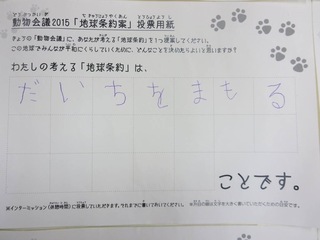 動物会議2015「地球条約案」投票用紙
チェブの「動物会議」に、あなたが考える「地球条約」を1つ提案してください。
この地球でみんなが平和にくらしていくために、どんなことを決めたらよいと思いますか?
わたしの考える「地球条約」は、
だいちをまもる
ことです。
※インターミッション(休憩時間)に投票していただきます。それまでに書いておいてください。